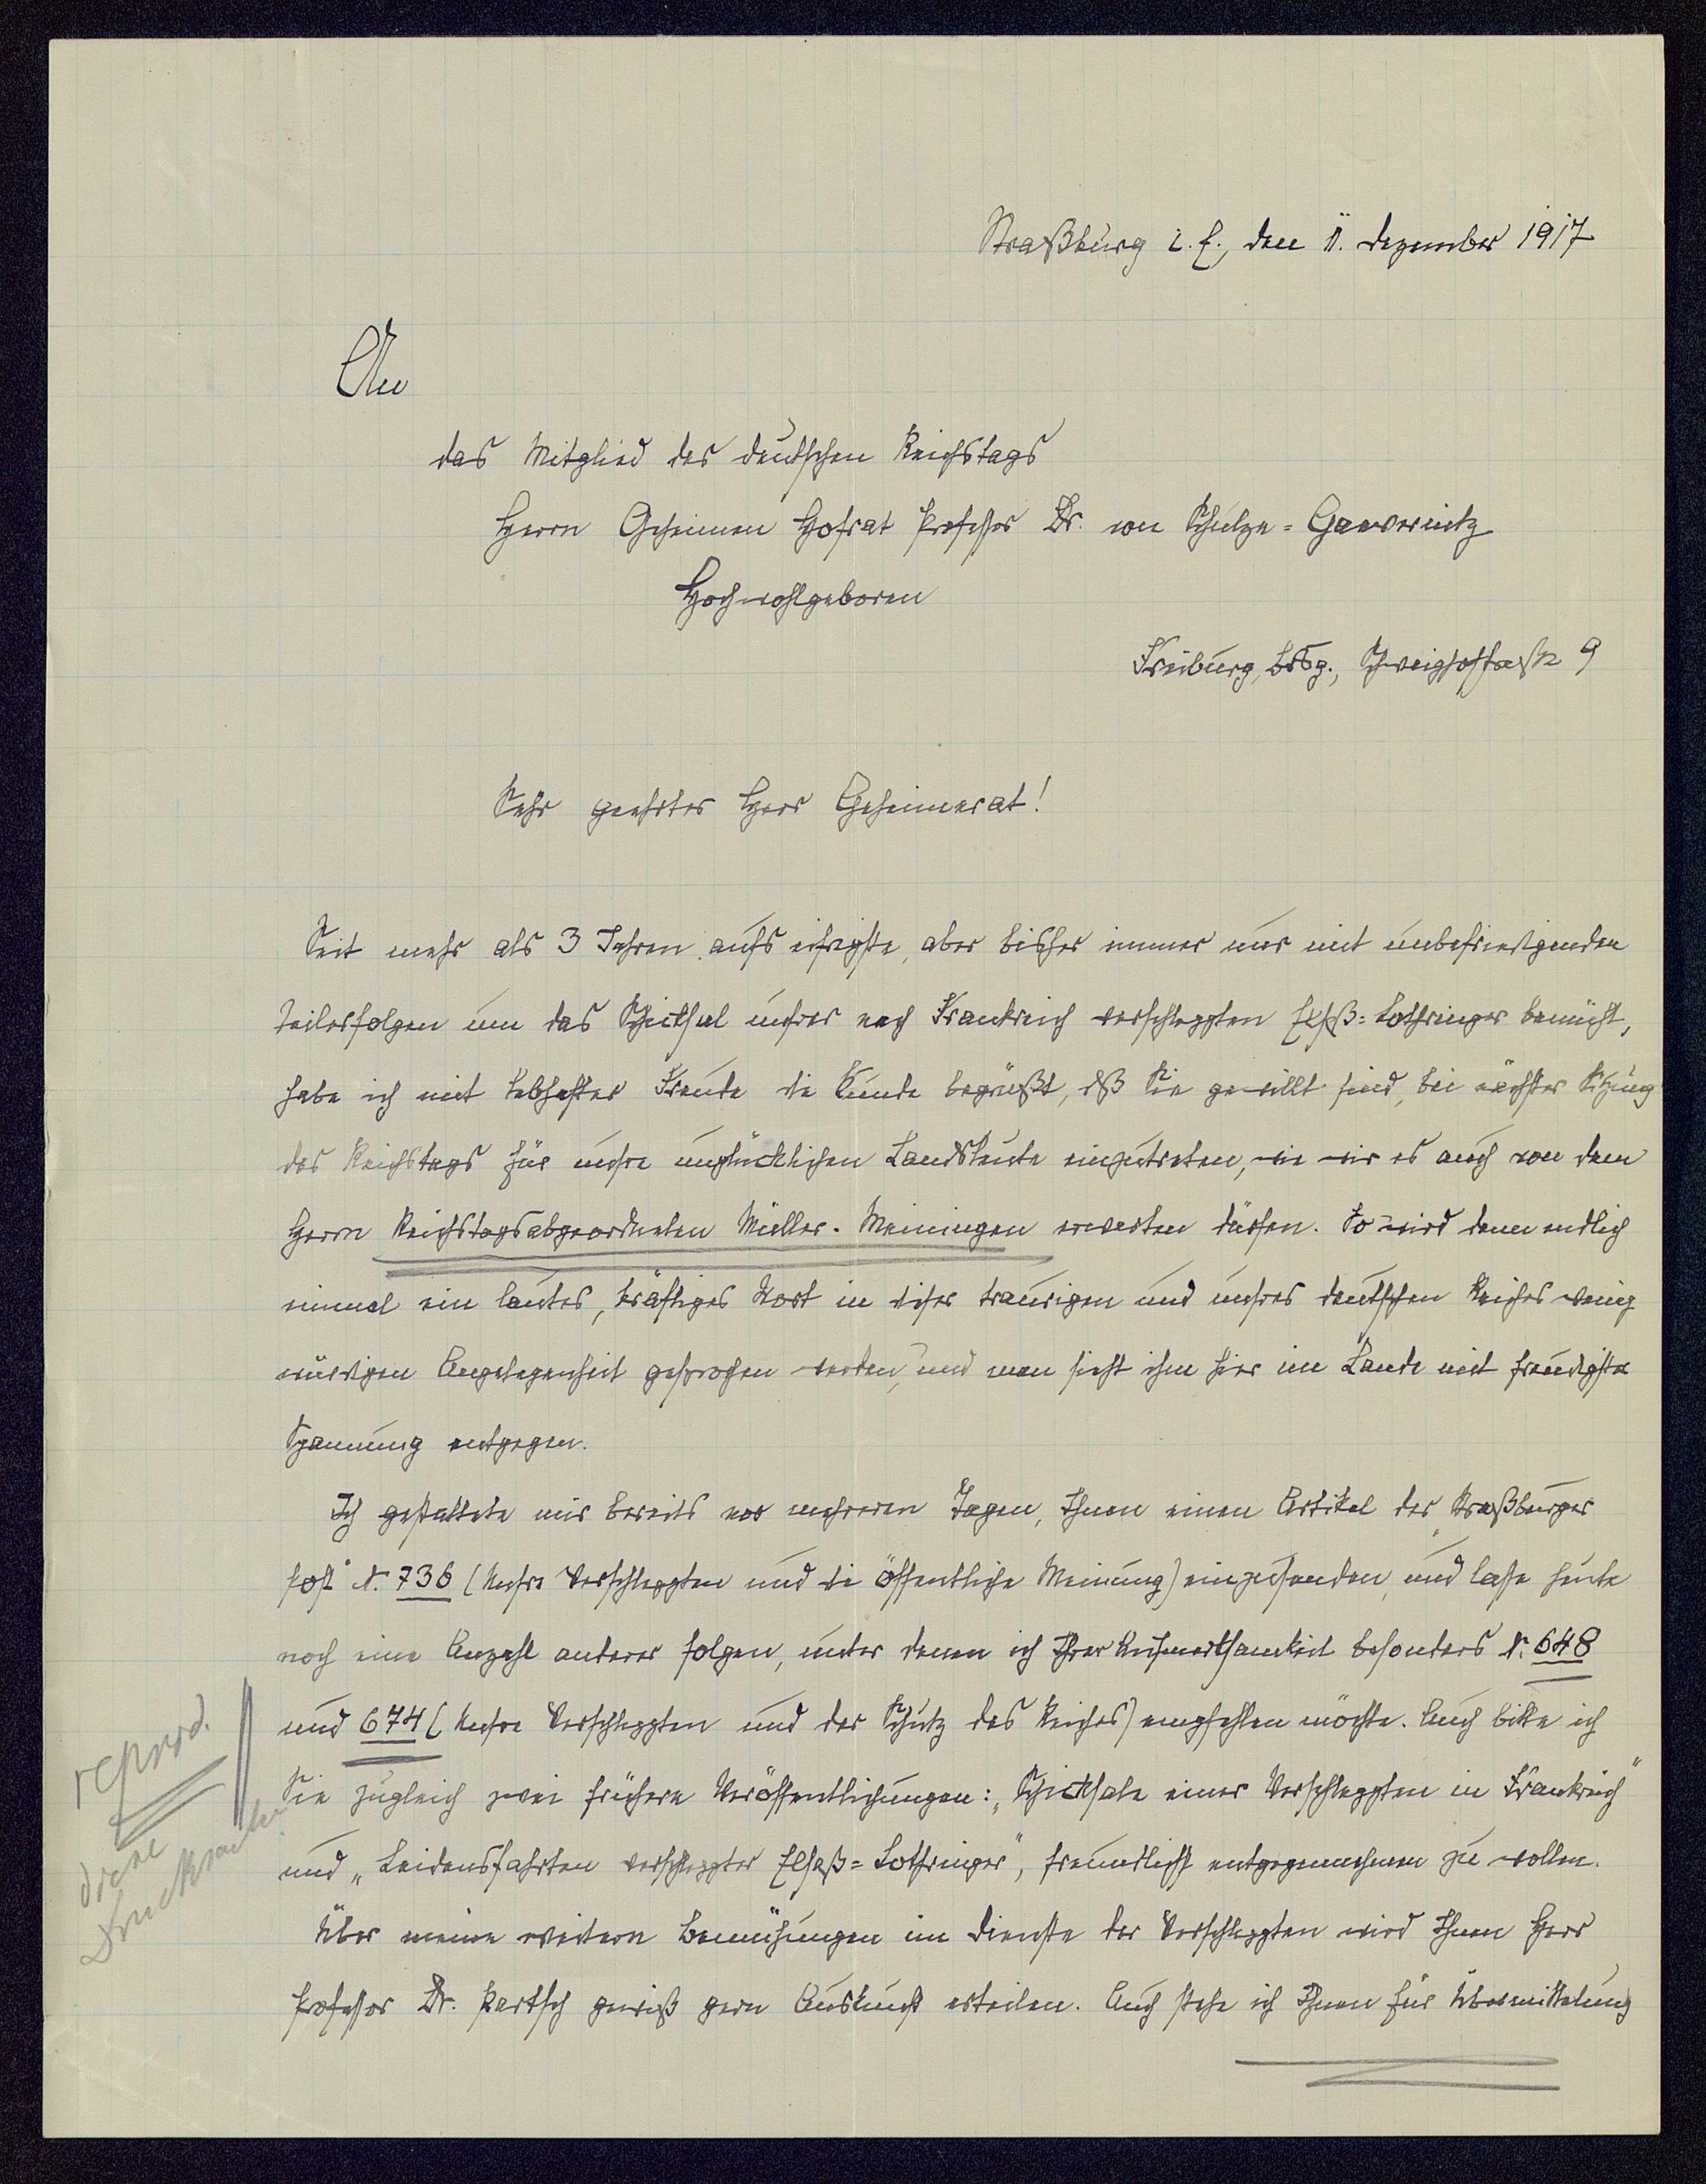 Straßburg i. E., den 11. Dezember 1917
An
das Mitglied des deutschen Reichstags
Herrn Geheimen Hofrat Professor Dr. von Schulze-Gaevernitz
Hochwohlgeboren
Freiburg, Brsg., Schweighofstraße 9
Sehr geehrter Herr Geheimerat!
Seit mehr als 3 Jahren aufs eifrigste, aber bisher immer nur mit unbefriedigenden
Teilerfolgen um das Schicksal unsrer nach Frankreich verschleppten Elsaß-Lothringer bemüht,
habe ich mit lebhafter Freude die Kunde begrüßt, daß Sie gewillt sind, bei nächster Sitzung
des Reichstags für unsre unglücklichen Landsleute einzutreten, wie wir es auch von dem
Herrn Reichstagsabgeordneten Müller-Meiningen erwarten dürfen. So wird denn endlich
einmal ein lautes, kräftiges Wort in dieser traurigen und unsres deutschen Reiches wenig
würdigen Angelegenheit gesprochen werden, und man sieht ihm hier im Lande mit freudigster
Spannung entgegen.
Ich gestattete mir bereits vor mehreren Tagen, Ihnen einen Artikel der „Straßburger
Post" N. 736 (Unsre Verschleppten und die öffentliche Meinung) einzusenden, und lasse heute
noch eine Anzahl anderer folgen, unter denen ich Ihrer Aufmerksamkeit besonders N. 648
und 674 (Unsre Verschleppten und der Schutz des Reiches) empfehlen möchte. Auch bitte ich
Sie zugleich zwei frühere Veröffentlichungen: „Schicksale einer Verschleppten in Frankreich"
und „Leidensfahrten verschleppter Elsaß-Lothringer", freundlichst entgegennehmen zu wollen.
Über meine weitern Bemühungen im Dienste der Verschleppten wird Ihnen Herr
Professor Dr. Partsch gewiß gern Auskunft erteilen. Auch stehe ich Ihnen für Übermittelung
diese
Drucksachen